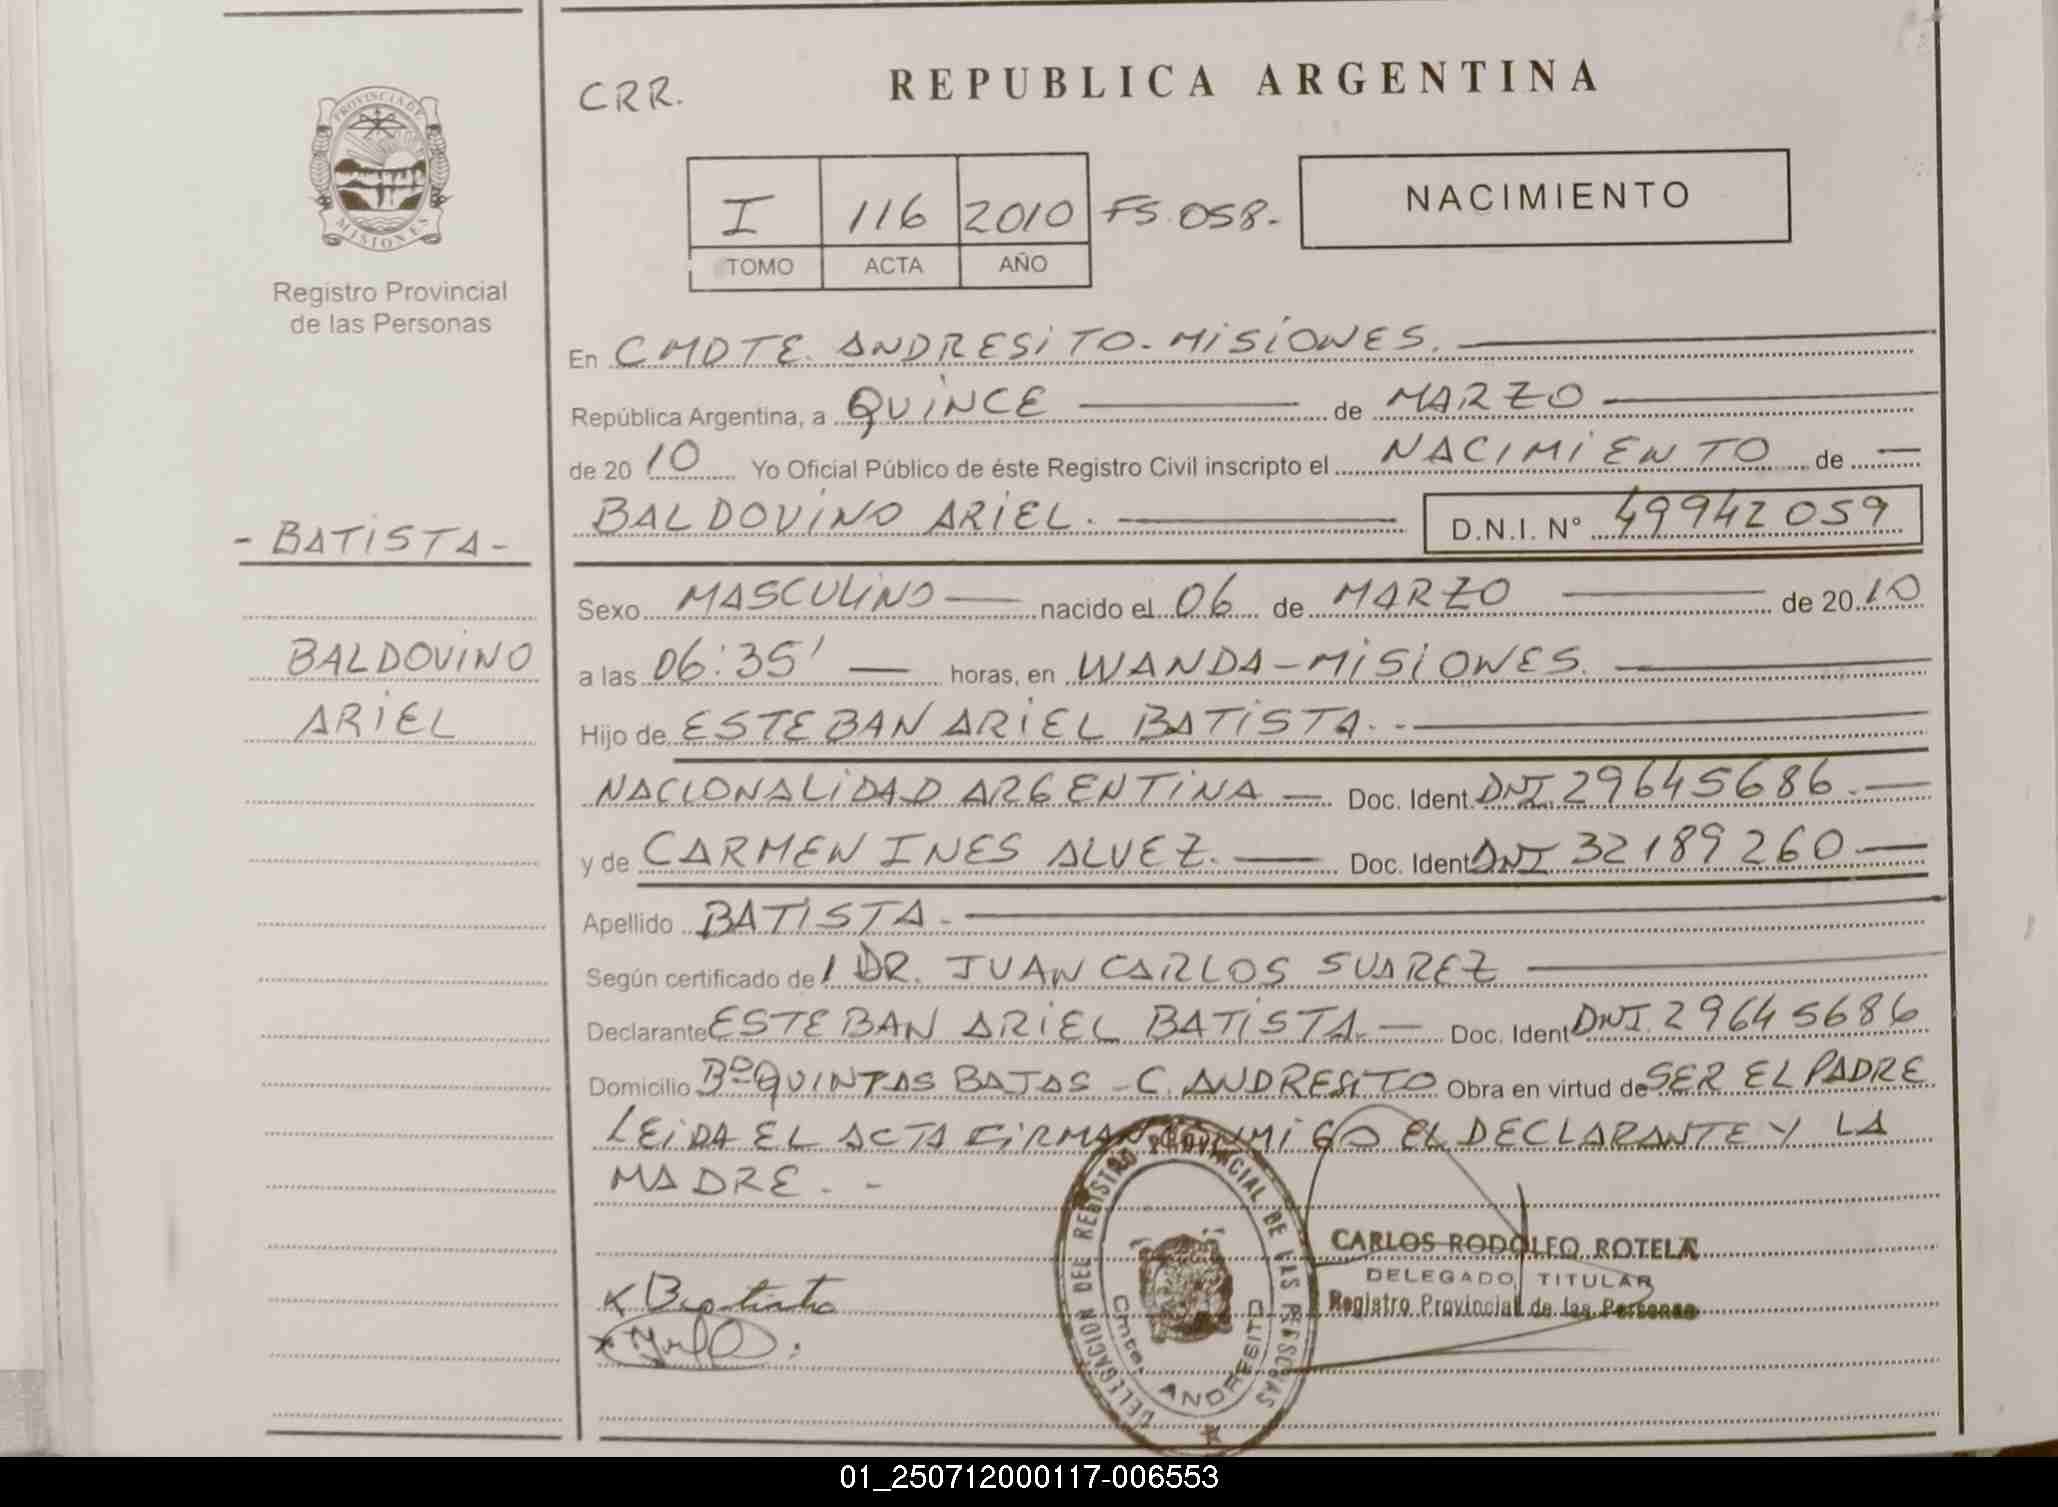 CRR.
REPUBLICA ARGENTINA
PROVINCIA DE
MISIONES
Registro Provincial
de las Personas
I 116 2010 FS. 058.-
TOMO ACTA AÑO
NACIMIENTO
En CMDTE. ANDRESITO-MISIONES.
República Argentina, a QUINCE de MARZO
de 2010 Yo Oficial Público de éste Registro Civil inscripto el NACIMIENTO de
BALDOVINO ARIEL. D.N.I. Nº 49942059
- BATISTA -
BALDOVINO
ARIEL
Sexo MASCULINO nacido el 06 de MARZO de 2010
a las 06:35' horas, en WANDA-MISIONES.
Hijo de ESTEBAN ARIEL BATISTA.-
NACIONALIDAD ARGENTINA Doc. Ident. DNI 29645686.
y de CARMEN INES ALVEZ. Doc. Ident DNI 32189260
Apellido BATISTA.
Según certificado de l DR. JUAN CARLOS SUAREZ
Declarante ESTEBAN ARIEL BATISTA. Doc. Ident DNI. 29645686
Domicilio Bº QUINTAS BAJAS - C. ANDRESITO Obra en virtud de SER EL PADRE
LEIDA EL ACTA FIRMAN CONMIGO EL DECLARANTE Y LA
MADRE. -
DELEGACION DEL REGISTRO PROVINCIAL DE LAS PERSONAS
Cmte. ANDRESITO
CARLOS RODOLFO ROTELA
DELEGADO TITULAR
Registro Provincial de las Personas
01_250712000117-006553